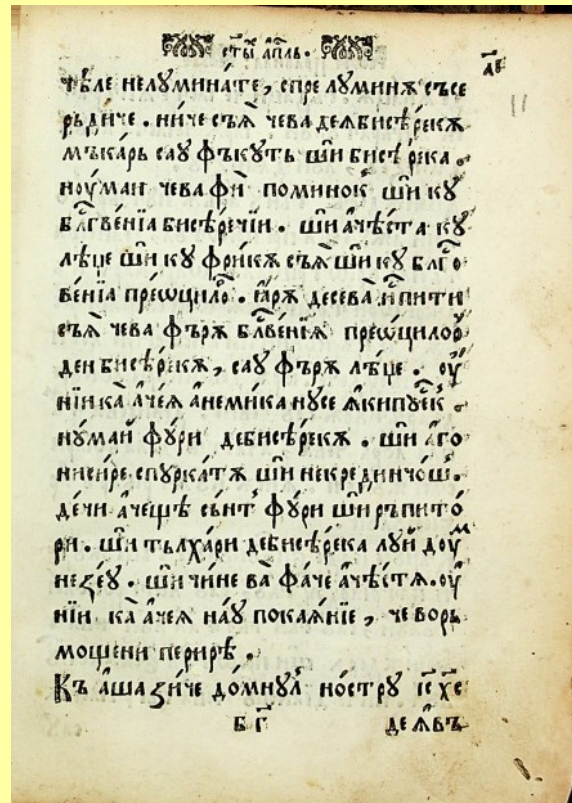 ст҃ы̀ а҆пⷭ҇лъ ·
д҃в
11
тѣ́ле нелꙋмина́те, спре лꙋминѫ съсе
рѣдиче . ни́че съѧ̀ чева деѧбисѣ́рекѫ
мъка́рь саꙋ фъкꙋть ши́и бисѣ́река .
ноу́маи чева фи́и поминок ши́и кꙋ
бл҃гве́нїа бисѣ́речїи . ши́и а҆чѣ́ста кꙋ
лѣ́џе ши́и кꙋ фри́кѫ съѧ̀ ши́и кꙋ бл҃го
ве́нїа прео́ѡцило . ꙗ҆рѫ десева̀ и҆спити
съѧ̀ чева фърѫ бл҃ве́нїѧ прео́ѡцилоⷬ
ден бисѣ́рекѫ, саꙋ фърѫ лѣ́џе . оу҆
нїи ка̀ а҆че́ѧ а҆неми́ка нꙋсе ꙗ҆кипꙋе́ск .
нꙋ́май фꙋ́ри дебисѣ́рекѫ . ши́и а҆го
нисире спꙋрка́тѫ ши́и некрединчо́ш .
де́чи а҆че́щѣ сы́нт фꙋ́ри ши́и ръпито́
ри . ши́и тълха́ри дебисѣ́река лꙋ́й доуⷨ
незе́ꙋ . ши́и чи́не ва̀ фа́че а҆чѣ́стѫ . оу҆
нїи ка̀ а҆че́ѧ на́ꙋ покаѧ́нїе, че ворь
мощени перирѣ .
Къ а҆́ша ѕи́че до́мнꙋл но́стрꙋ і҆с҃ х҃с
б г҃ де ꙗ҆́въ